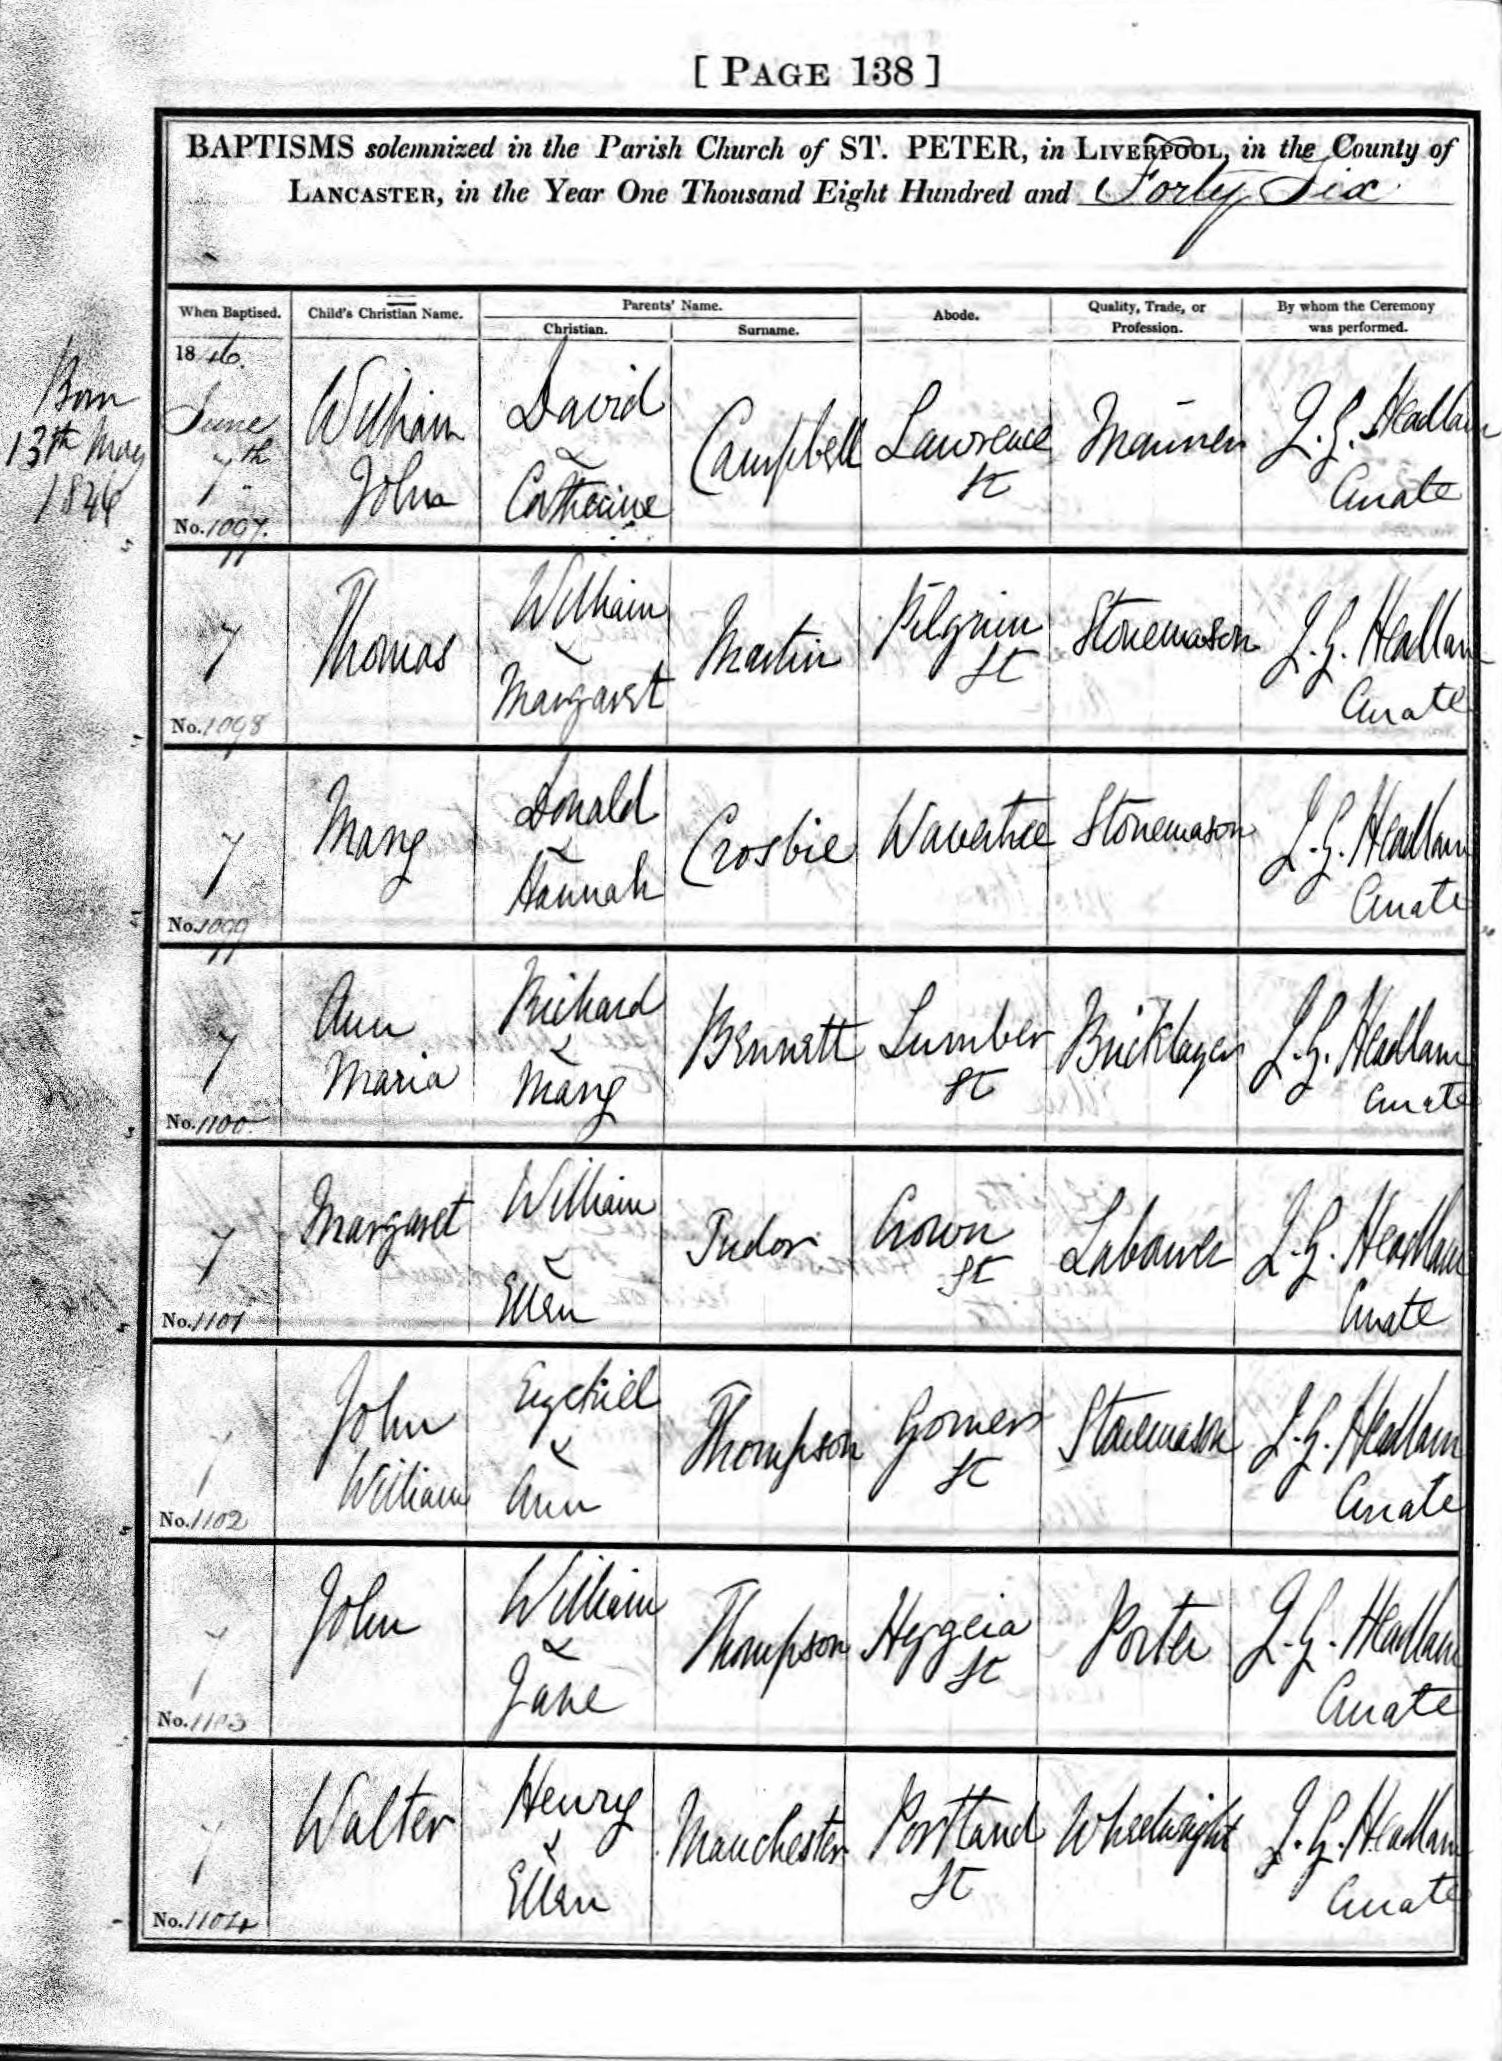 [ PAGE 138 ]
BAPTISMS solemnized in the Parish Church of ST. PETER, in LIVERPOOL, in the County of
LANCASTER, in the Year One Thousand Eight Hundred and Forty Six
When Baptised.
Child's Christian Name.
Parents' Name.
Christian.
Surname.
Abode.
Quality, Trade, or
Profession.
By whom the Ceremony
was performed.
Born
13th May
1846
1846.
June
7th
No. 1097.
William
John
David
&
Catherine
Campbell
Lawrence
St
Mariner
J. G. Headlam
Curate
7
No. 1098
Thomas
William
&
Margaret
Martin
Pilgrim
St
Stonemason
J. G. Headlam
Curate
7
No. 1099
Mary
Donald
&
Hannah
Crosbie
Wavertree
Stonemason
J. G. Headlam
Curate
7
No. 1100
Ann
Maria
Richard
&
Mary
Bennett
Lumber
St
Bricklayer
J. G. Headlam
Curate
7
No. 1101
Margaret
William
&
Ellen
Tudor
Crown
St
Labourer
J. G. Headlam
Curate
7
No. 1102
John
William
Ezekiel
&
Ann
Thompson
Gomer
St
Stonemason
J. G. Headlam
Curate
7
No. 1103
John
William
&
Jane
Thompson
Hygeia
St
Porter
J. G. Headlam
Curate
7
No. 1104
Walter
Henry
&
Ellen
Manchester
Portland
St
Wheelwright
J. G. Headlam
Curate